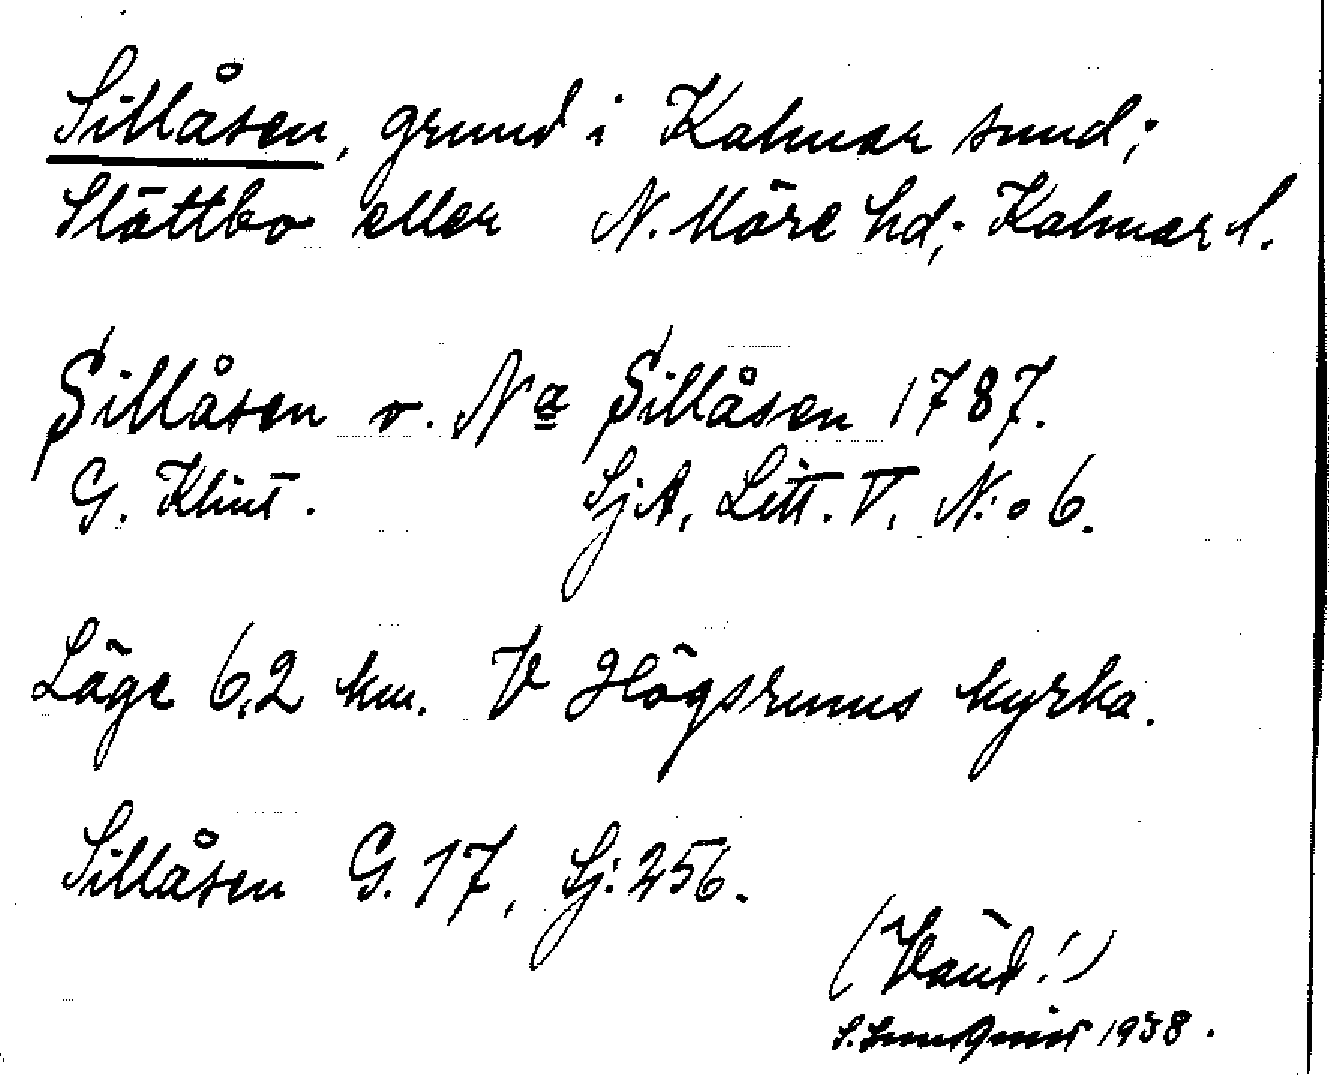 Sillåsen, grund i Kalmar sund;
Slättbo eller N. Möre hd; Kalmar l.
Sillåsen v. Na Sillåsen 1787.
G. Klint. SjA, Litt. V. N:o 6.
Läge 6,2 km. V Högsrums kyrka.
Sillåsen G. 17, Sj: 256.
(Vänd!)
S. Lundqvist 1938.